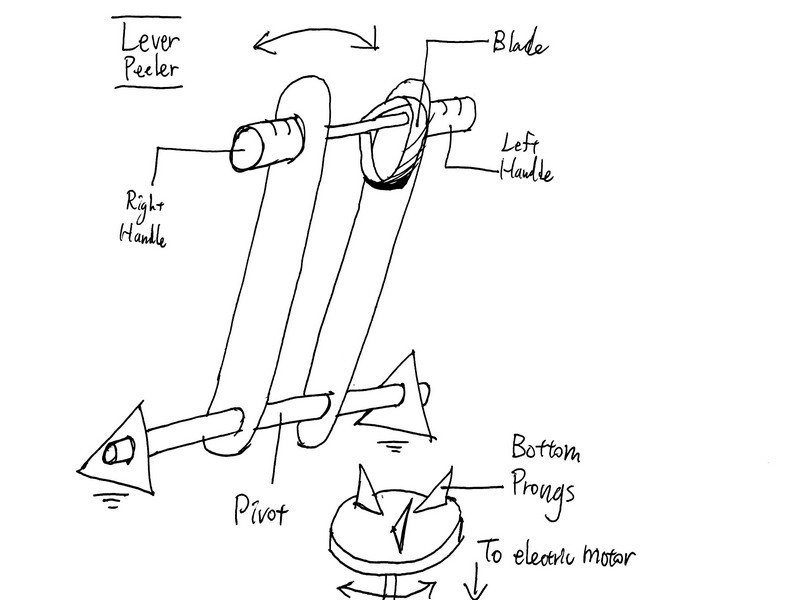 Lever
Peeler
Blade
Left
Handle
Right
Handle
Pivot
Bottom
Prongs
To electric motor